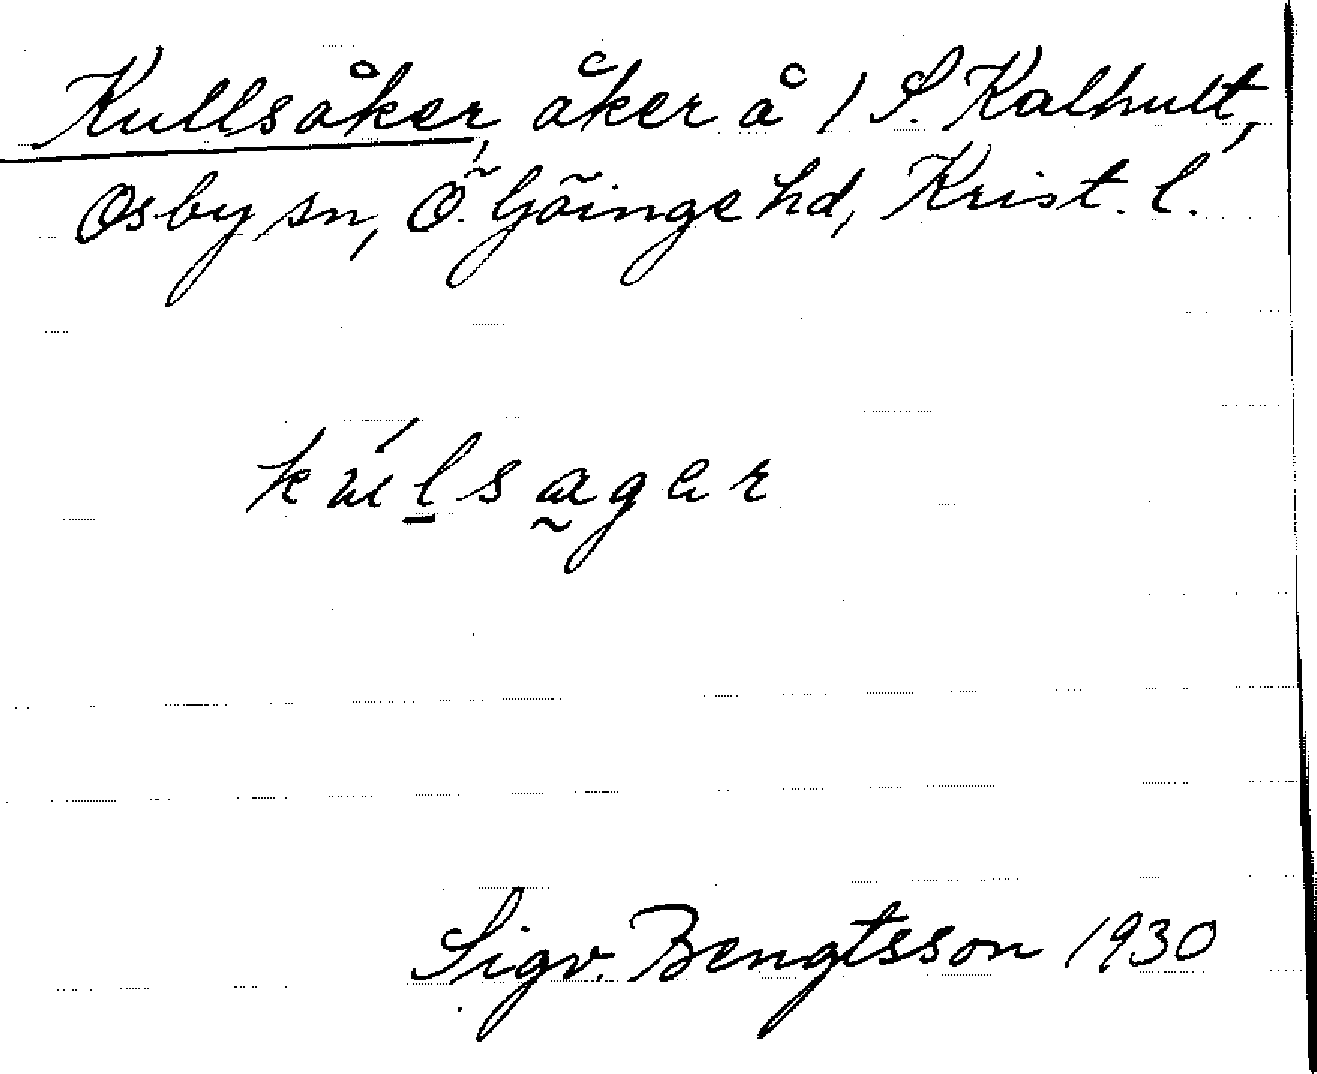 Kullsåker, åker å 1 S. Kalhult,
Osby sn, Ö. Göinge hd, Krist. l.
kúlsager
Sigv. Bengtsson 1930